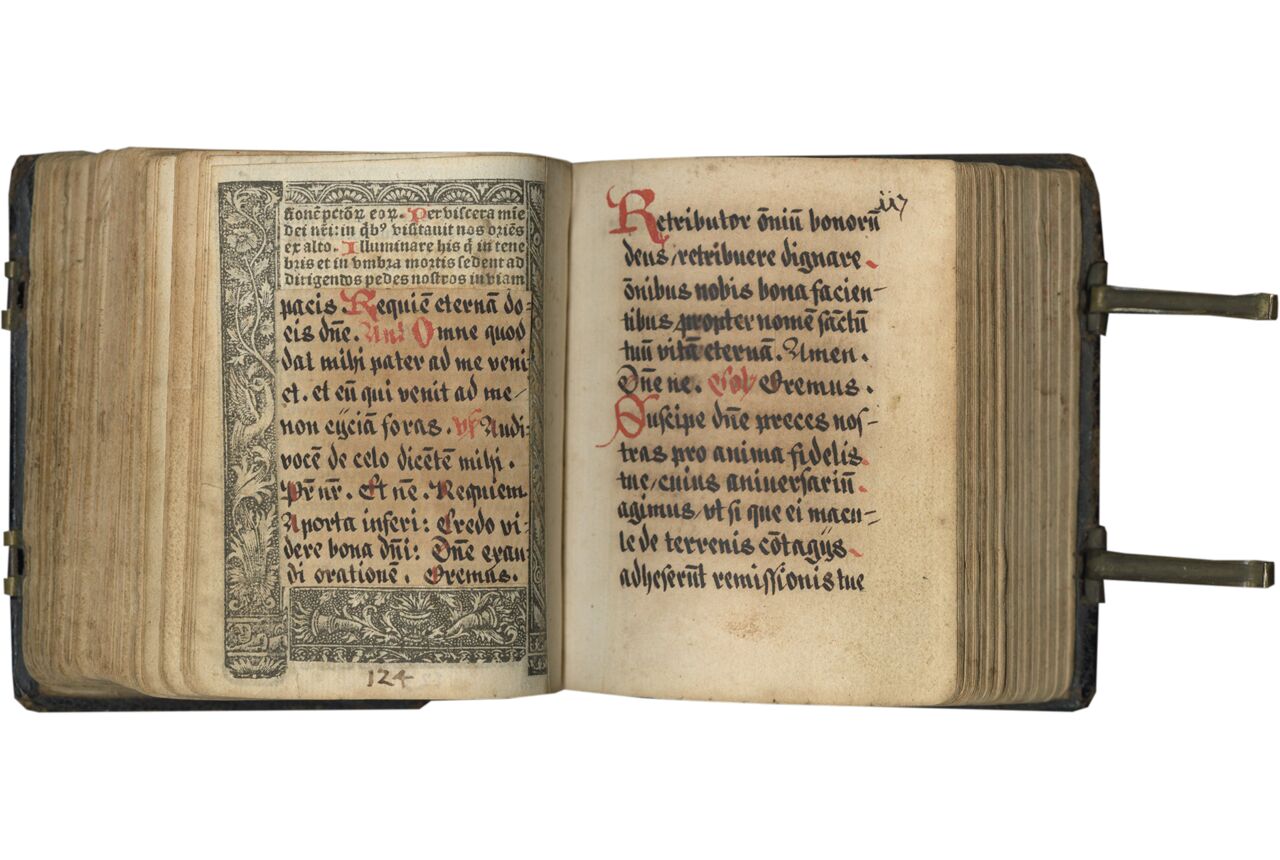 sionē pctōꝝ eoꝝ. Per viscera mīe
dei nr̄i: in q̄bꝰ visitauit nos oriēs
ex alto. Illuminare his q̄ in tene
bris et in vmbra mortis sedent ad
dirigendos pedes nostros in viam
pacis Requiē eternā do=
eis dn̄e. Ant Omne quod
dat mihi pater ad me veni=
et. et eū qui venit ad me
non eijciā foras. vs Audi
vocē de celo dicētē mihi.
Pr̄ nr̄. Et nē. Requiem
A porta inferi: Credo vi=
dere bona dn̄i: Dn̄e exau
di orationē. Oremus.
124
117
Retributor ōniū bonorū
deus/retribuere dignare
ōnibus nobis bona facien=
tibus propter nomē sāctū
tuū vitā eternā. Amen.
Dn̄e ne. Col Oremus.
Suscipe dn̄e preces nos=
tras pro anima fidelis
tue/cuius aniuersariū
agimus/vt si que ei macu=
le de terrenis cōtagijs
adheserūt remissionis tue